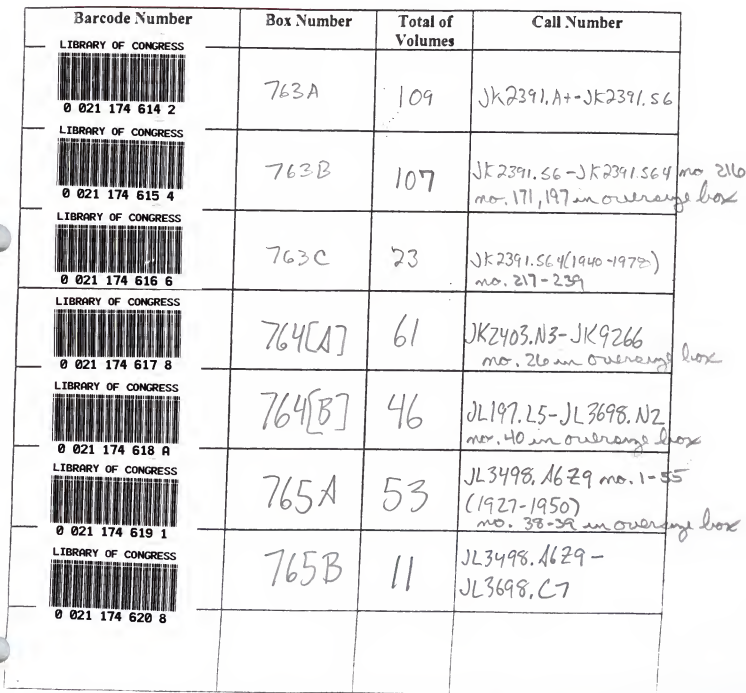 Barcode Number Box Number Total of Volumes Call Number
LIBRARY OF CONGRESS
0 021 174 614 2
763A 109 JK2391.A+-JK2391.S6
LIBRARY OF CONGRESS
0 021 174 615 4
763B 107 JK2391.S6-JK2391.S64 no. 216
no. 171,197 in oversize box
LIBRARY OF CONGRESS
0 021 174 616 6
763C 23 JK2391.S64(1940-1978)
no. 217-239
LIBRARY OF CONGRESS
0 021 174 617 8
764[A] 61 JK2403.N3-JK9266
no. 26 in oversize box
LIBRARY OF CONGRESS
0 021 174 618 A
764[B] 46 JL197.L5-JL3698.N2
no. 40 in oversize box
LIBRARY OF CONGRESS
0 021 174 619 1
765A 53 JL3498.A6Z9 no. 1-55
(1927-1950)
no. 38-39 in oversize box
LIBRARY OF CONGRESS
0 021 174 620 8
765B 11 JL3498.A6Z9-
JL3698.C7